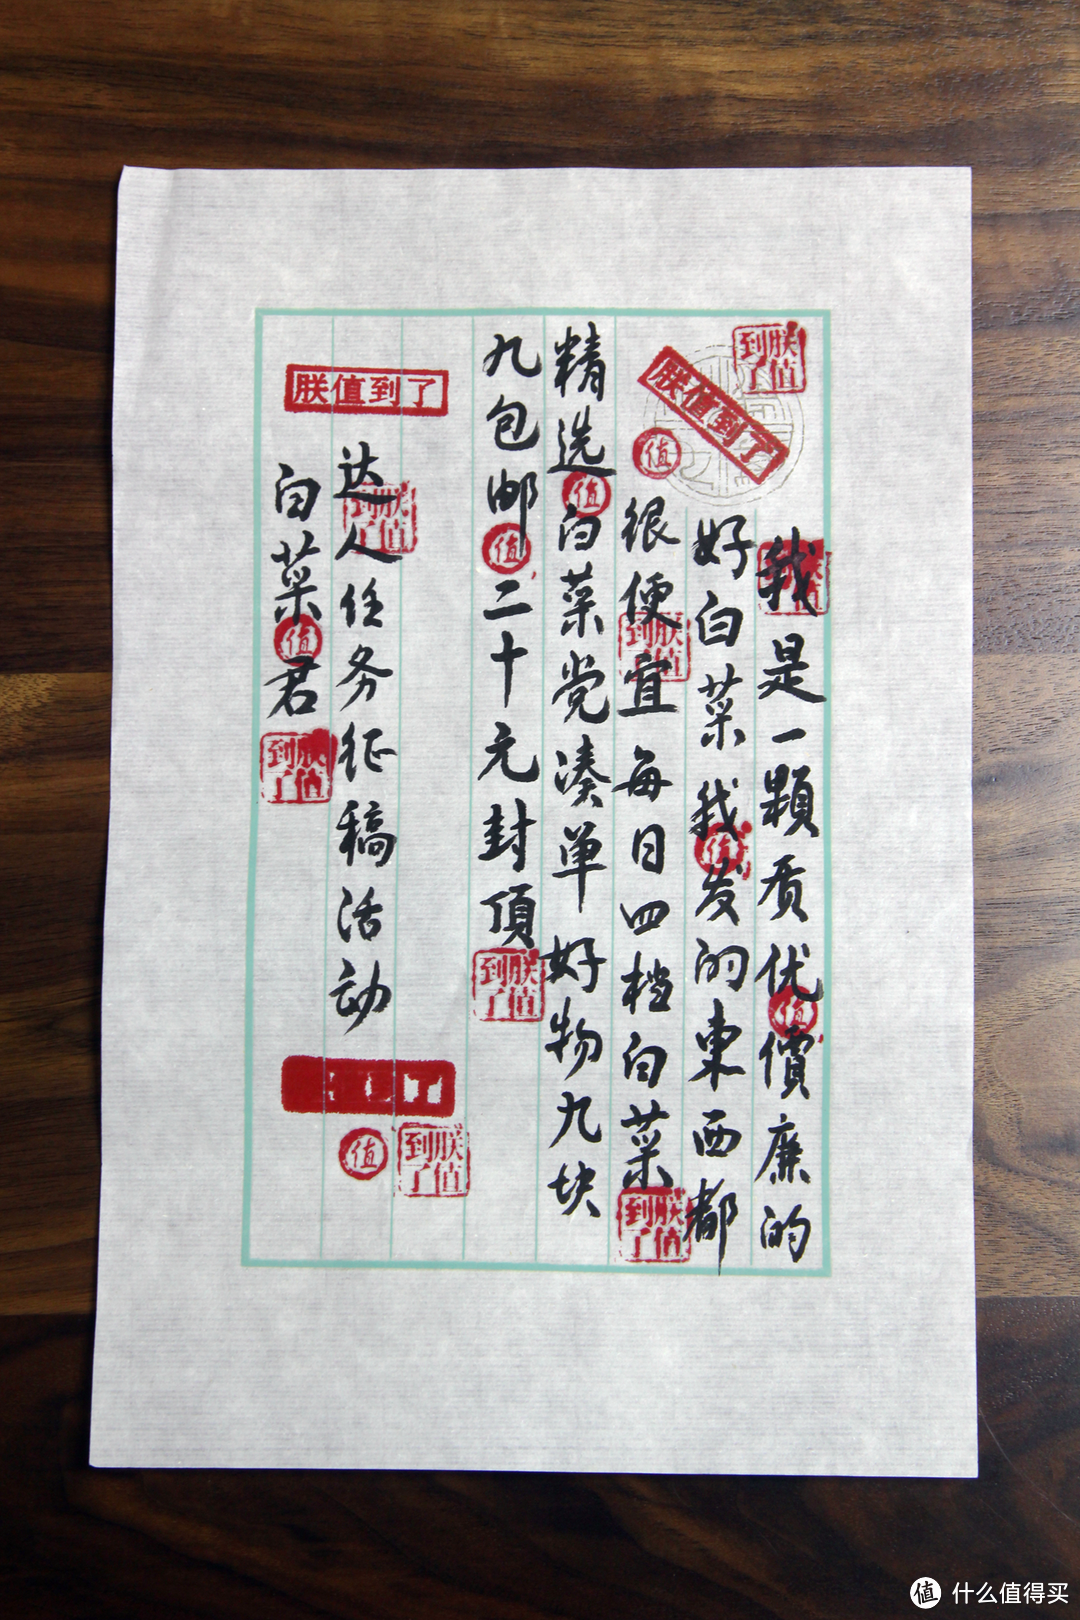 朕值到了
朕值到了
值
我是一顆质优價廉的
朕值到了
值
好白菜我发的東西都
值
很便宜每日四档白菜
朕值到了
朕值到了
精选白菜党凑单好物九块
值
九包邮二十元封頂
值
朕值到了
朕值到了
达人任务征稿活动
朕值到了
白菜君
值
朕值到了
值
朕值到了
值 什么值得买